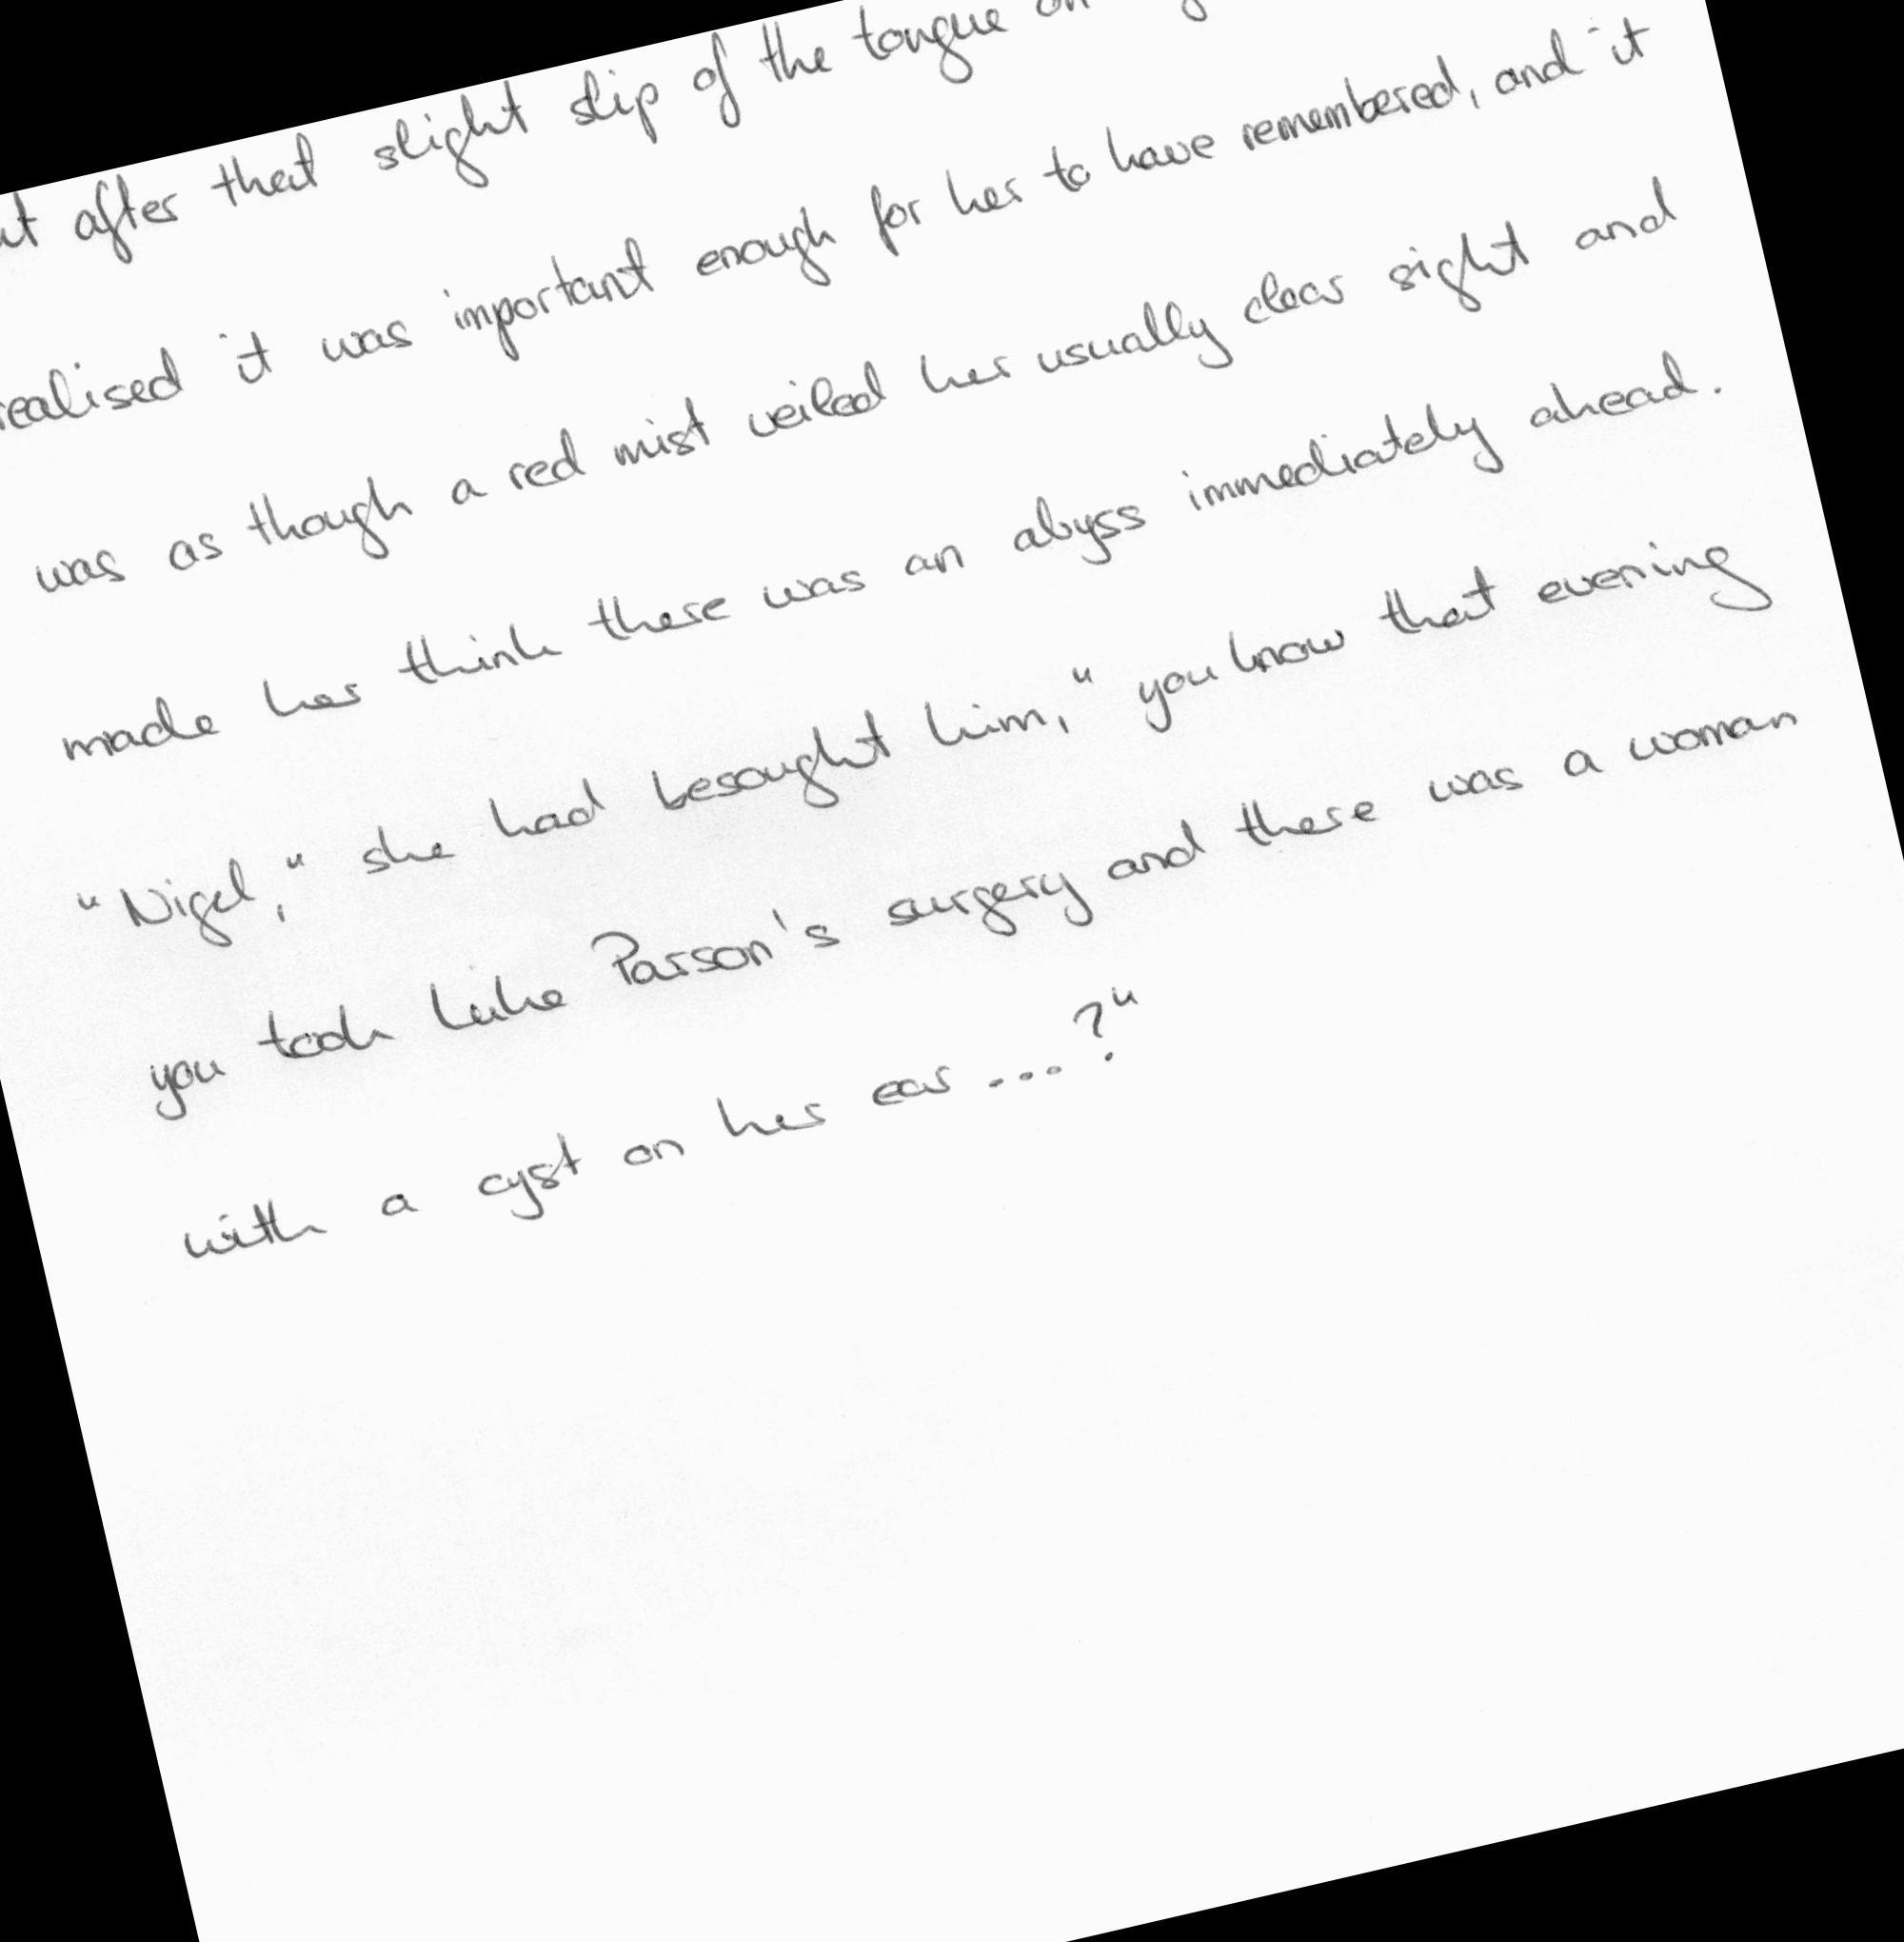 after that slight slip of the tongue on
realised it was important enough for her to have remembered, and it
was as though a red mist veiled her usually clear sight and
made her think there was an abyss immediately ahead.
"Nigel," she had besought him," you know that evening
you took Luke Parson's surgery and there was a woman
with a cyst on her ear ...?"